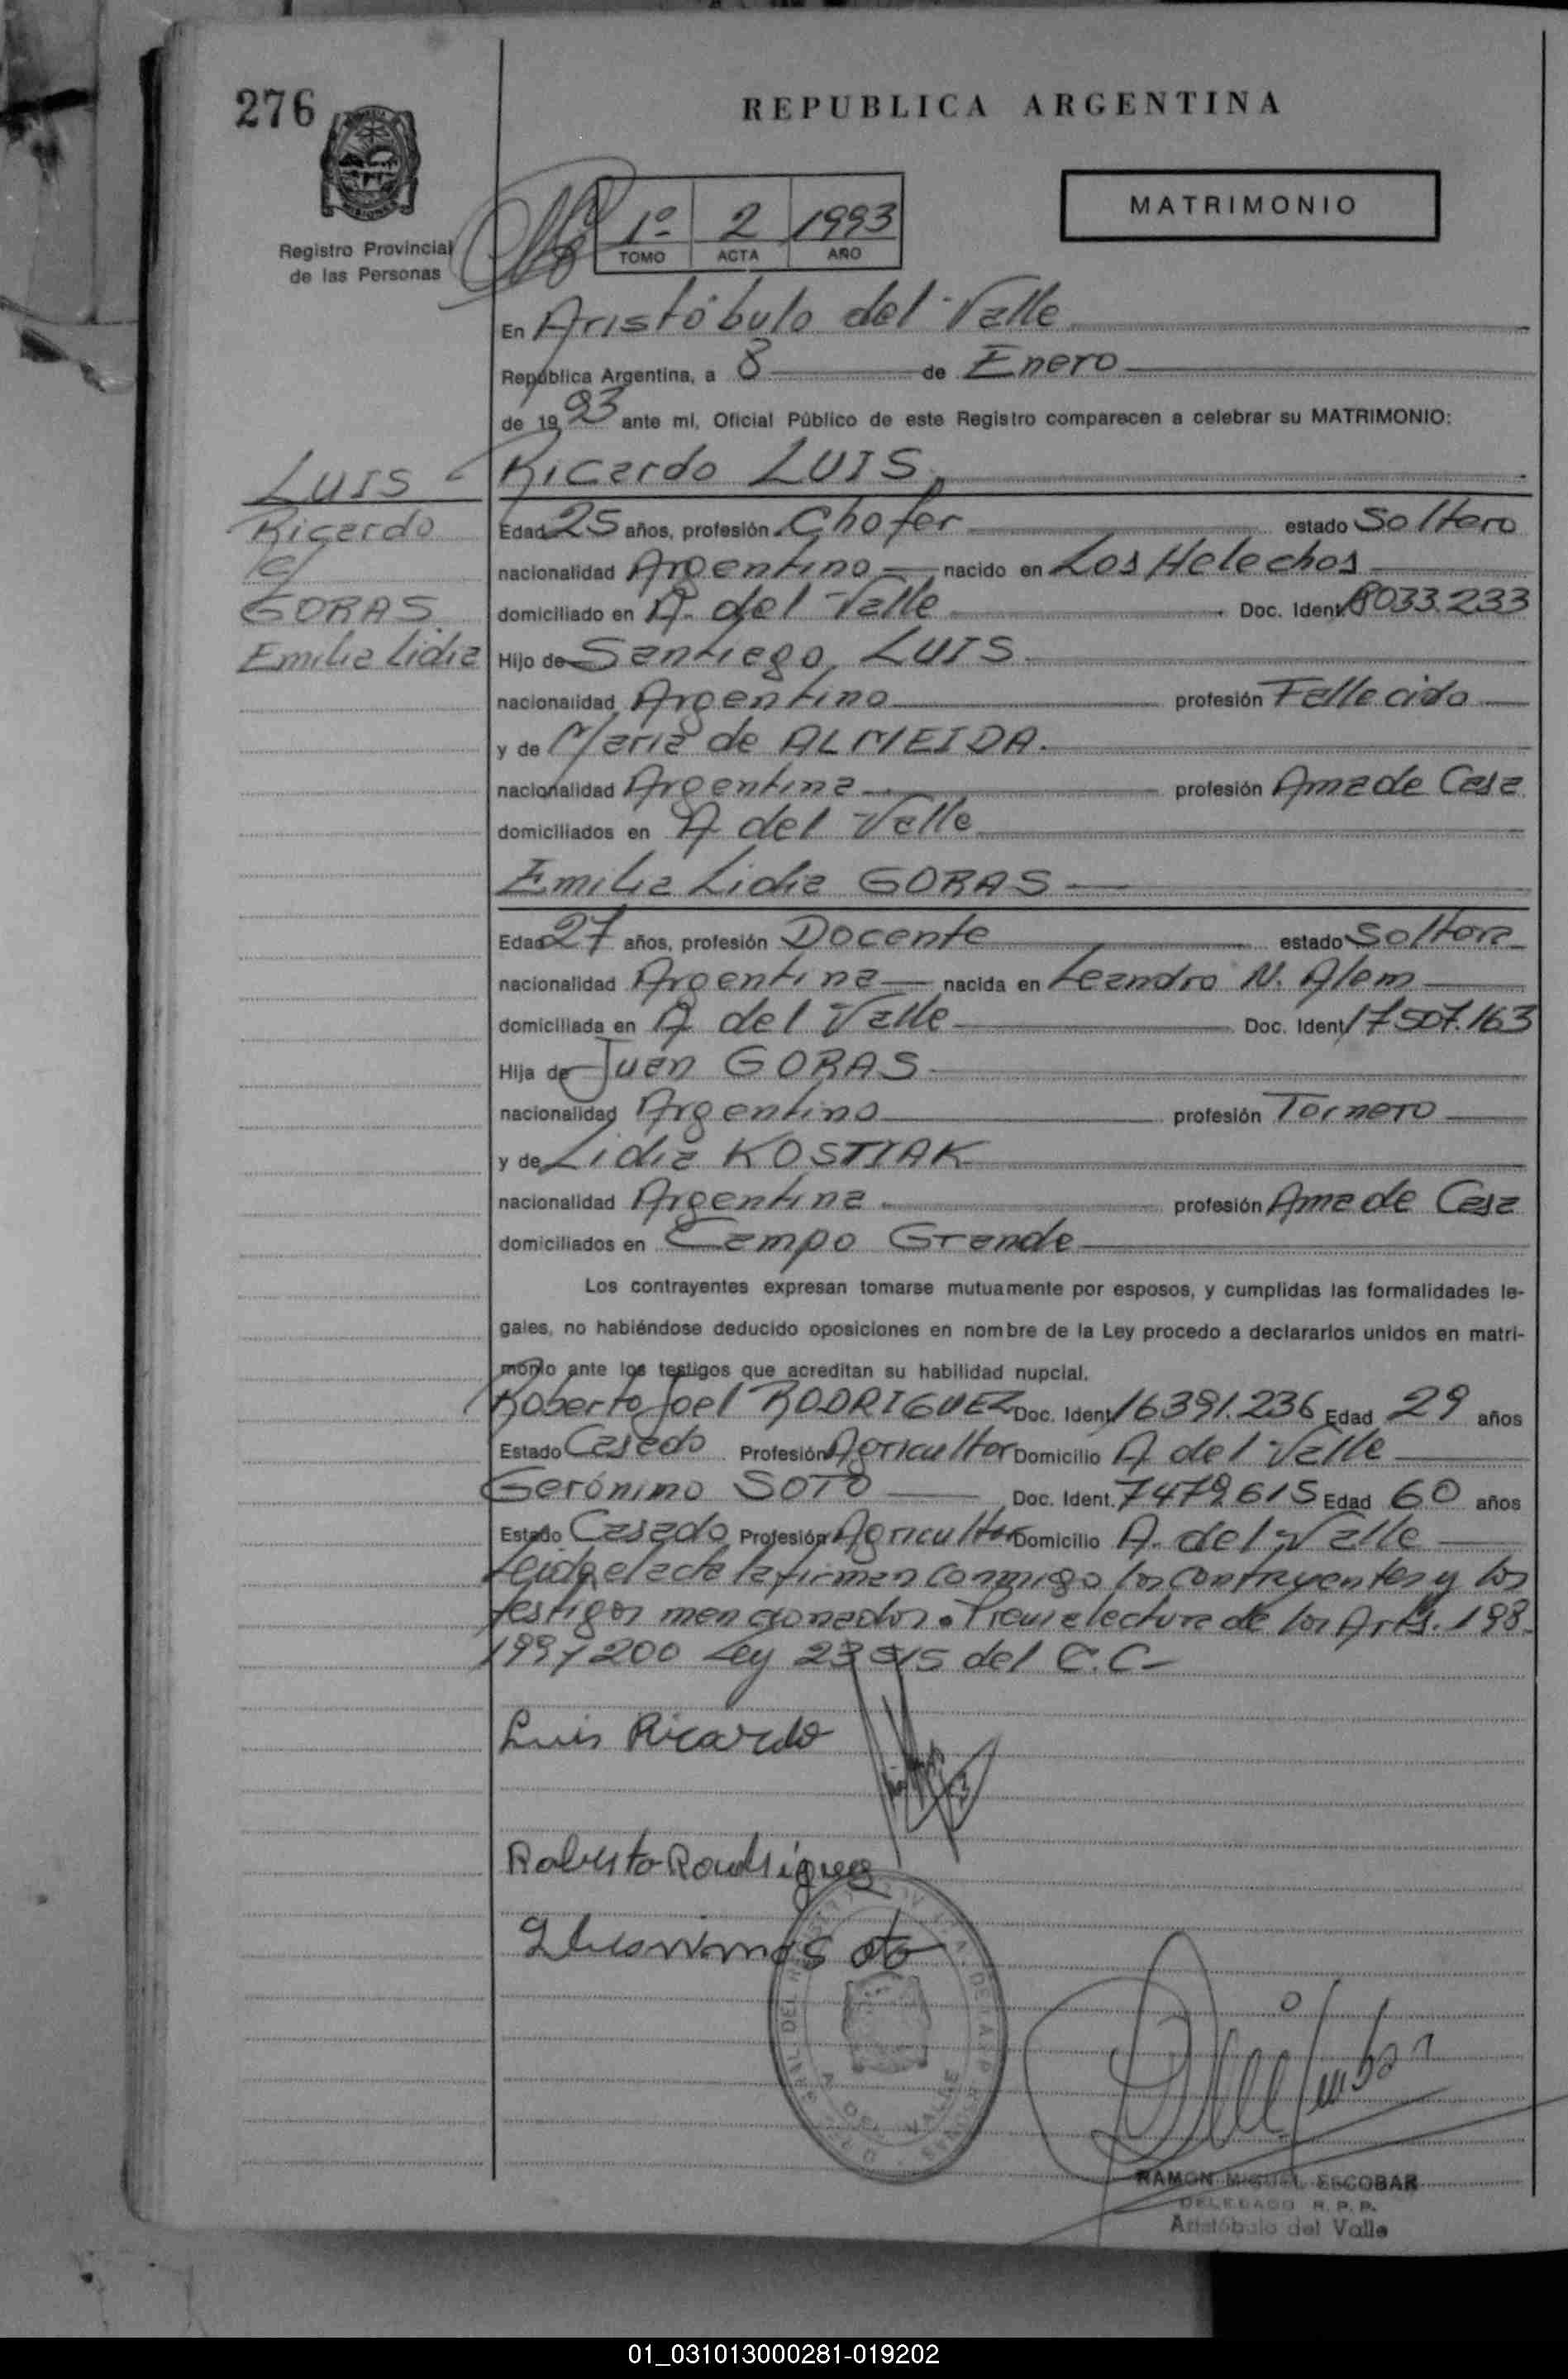 276
REPUBLICA ARGENTINA
MATRIMONIO
Registro Provincial
de las Personas
1º 2 1993
TOMO ACTA AÑO
En Aristóbulo del Valle
República Argentina, a 8 de Enero
de 1993 ante mí, Oficial Público de este Registro comparecen a celebrar su MATRIMONIO:
LUIS
Ricardo
c/
GORAS
Emilia Lidia
Ricardo LUIS
Edad 25 años, profesión Chofer estado Soltero
nacionalidad Argentino nacido en Los Helechos
domiciliado en A. del Valle Doc. Ident. 8033.233
Hijo de Santiago LUIS
nacionalidad Argentino profesión Fallecido
y de Maria de ALMEIDA.
nacionalidad Argentina profesión Ama de Casa
domiciliados en A del Valle
Emilia Lidia GORAS
Edad 27 años, profesión Docente estado Soltera
nacionalidad Argentina nacida en Leandro N. Alem
domiciliada en A del Valle Doc. Ident. 17507.163
Hija de Juan GORAS
nacionalidad Argentino profesión Tornero
y de Lidia KOSTIAK
nacionalidad Argentina profesión Ama de Casa
domiciliados en Campo Grande
Los contrayentes expresan tomarse mutuamente por esposos, y cumplidas las formalidades le-
gales, no habiéndose deducido oposiciones en nombre de la Ley procedo a declararlos unidos en matri-
monio ante los testigos que acreditan su habilidad nupcial.
Roberto Joel RODRIGUEZ Doc. Ident. 16391.236 Edad 29 años
Estado Casado Profesión Agricultor Domicilio A del Valle
Gerónimo SOTO Doc. Ident. 7479615 Edad 60 años
Estado Casado Profesión Agricultor Domicilio A. del Valle
Leida el acta la firman conmigo los contrayentes y los
testigos mencionados. Previa lectura de los Arts. 198-
199 y 200 Ley 23515 del C.C-
Luis Ricardo
Roberto Rodriguez
A. DEL VALLE
RAMON MIGUEL ESCOBAR
DELEGADO R. P. P.
Aristóbulo del Valle
01_031013000281-019202